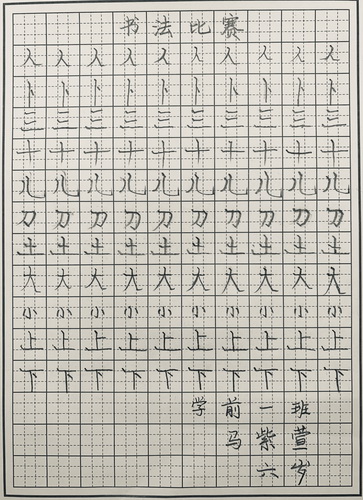 书法比赛
人人人人人人人人人人
卜卜卜卜卜卜卜卜卜卜
三三三三三三三三三三
十十十十十十十十十十
儿儿儿儿儿儿儿儿儿儿
刀刀刀刀刀刀刀刀刀刀
土土土土土土土土土土
大大大大大大大大大大
小小小小小小小小小小
上上上上上上上上上上
下下下下下下下下下下
学前一班
马紫萱
六岁